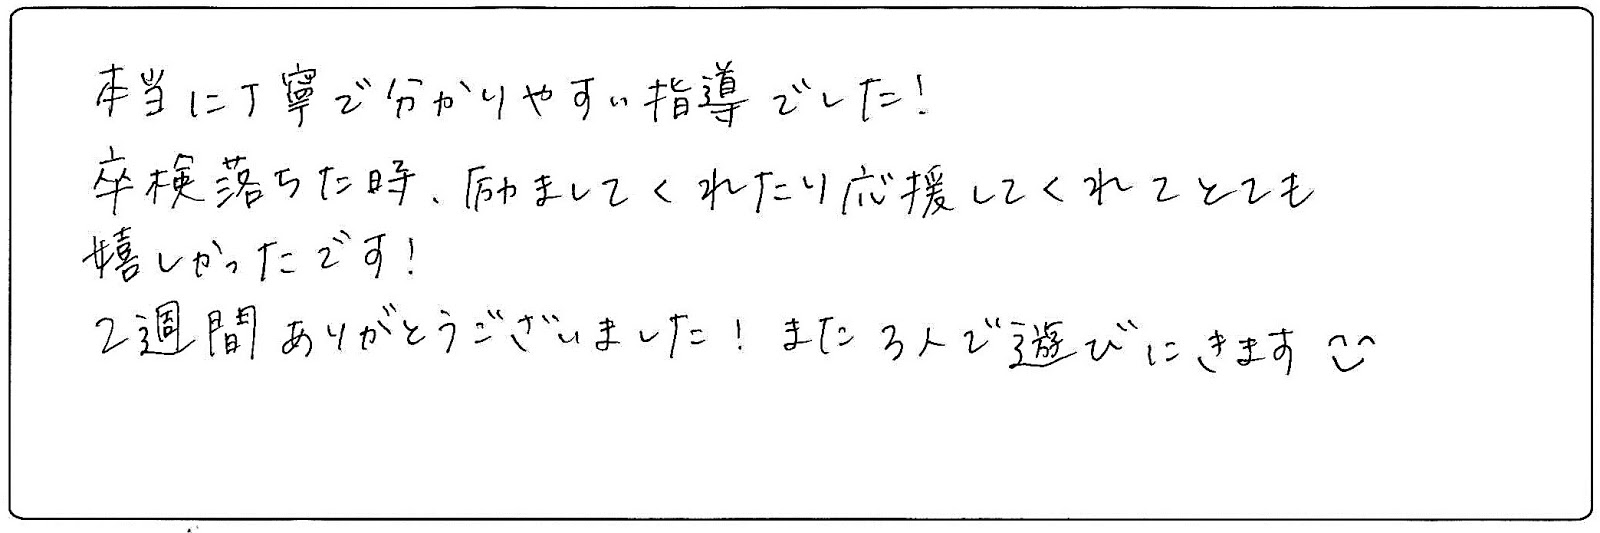 本当に丁寧で分かりやすい指導でした!
卒検落ちた時、励ましてくれたり応援してくれてとても
嬉しかったです!
2週間ありがとうございました!また3人で遊びにきます